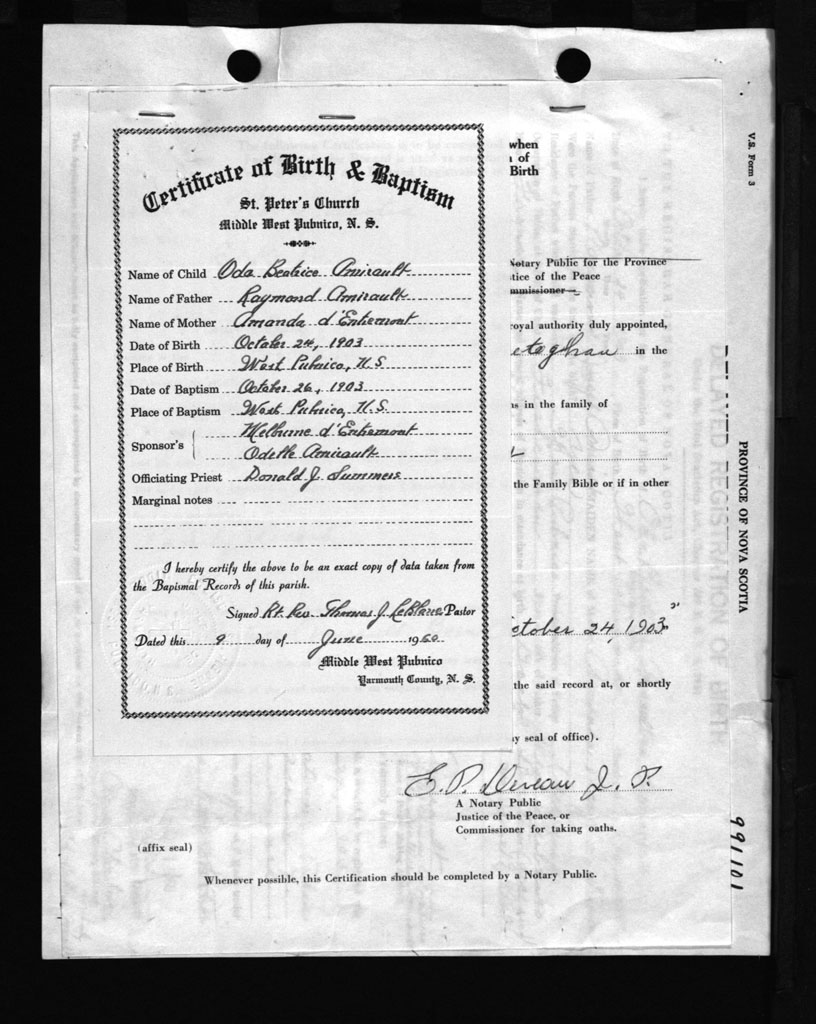 Certificate of Birth & Baptism
St. Peter's Church
Middle West Pubnico, N. S.
Name of Child Oda Beatrice Amirault
Name of Father Raymond Amirault
Name of Mother Amanda d'Entremont
Date of Birth October 24, 1903
Place of Birth West Pubnico, N.S.
Date of Baptism October 26, 1903
Place of Baptism West Pubnico, N.S.
Sponsor's Melburne d'Entremont
Odelle Amirault
Officiating Priest Donald J. Summers
Marginal notes
I hereby certify the above to be an exact copy of data taken from
the Bapismal Records of this parish.
Signed Rt. Rev. Thomas J. LeBlanc Pastor
Dated this 9 day of June 1960.
Middle West Pubnico
Yarmouth County, N. S.
when
of
Birth
Notary Public for the Province
tice of the Peace
mmissioner
oyal authority duly appointed,
eteghan in the
ns in the family of
the Family Bible or if in other
ctober 24, 1903"
the said record at, or shortly
y seal of office).
E. P. J. P.
A Notary Public
Justice of the Peace, or
Commissioner for taking oaths.
(affix seal)
Whenever possible, this Certification should be completed by a Notary Public.
V.S. Form 3
PROVINCE OF NOVA SCOTIA
REGISTRATION OF BIRTH
991101